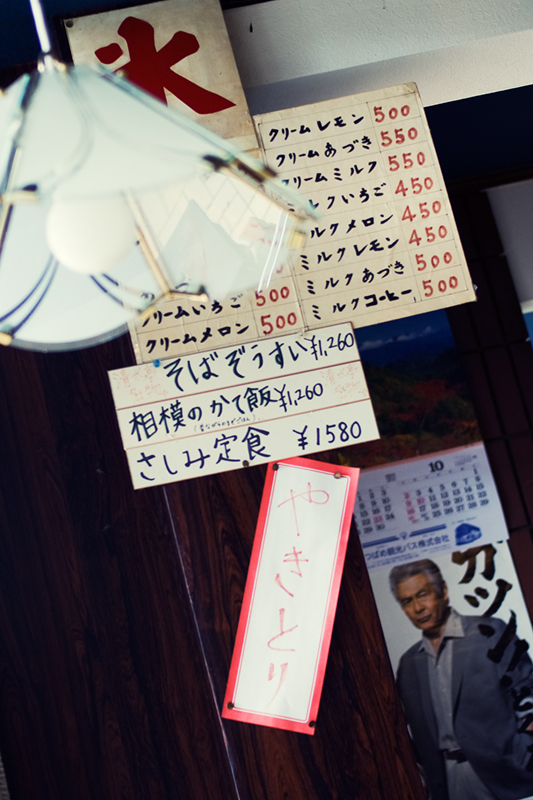 氷
クリームレモン 500
クリームあづき 550
クリームミルク 550
ルクいちご 450
ルクメロン 450
ミルクレモン 450
ミルクあづき 500
ミルクコーヒー 500
クリームいちご 500
クリームメロン 500
そばぞうすい ¥1,260
相模のかて飯 ¥1,260
さしみ定食 ¥1580
やきとり
10
つばめ観光バス株式会社
ガツン